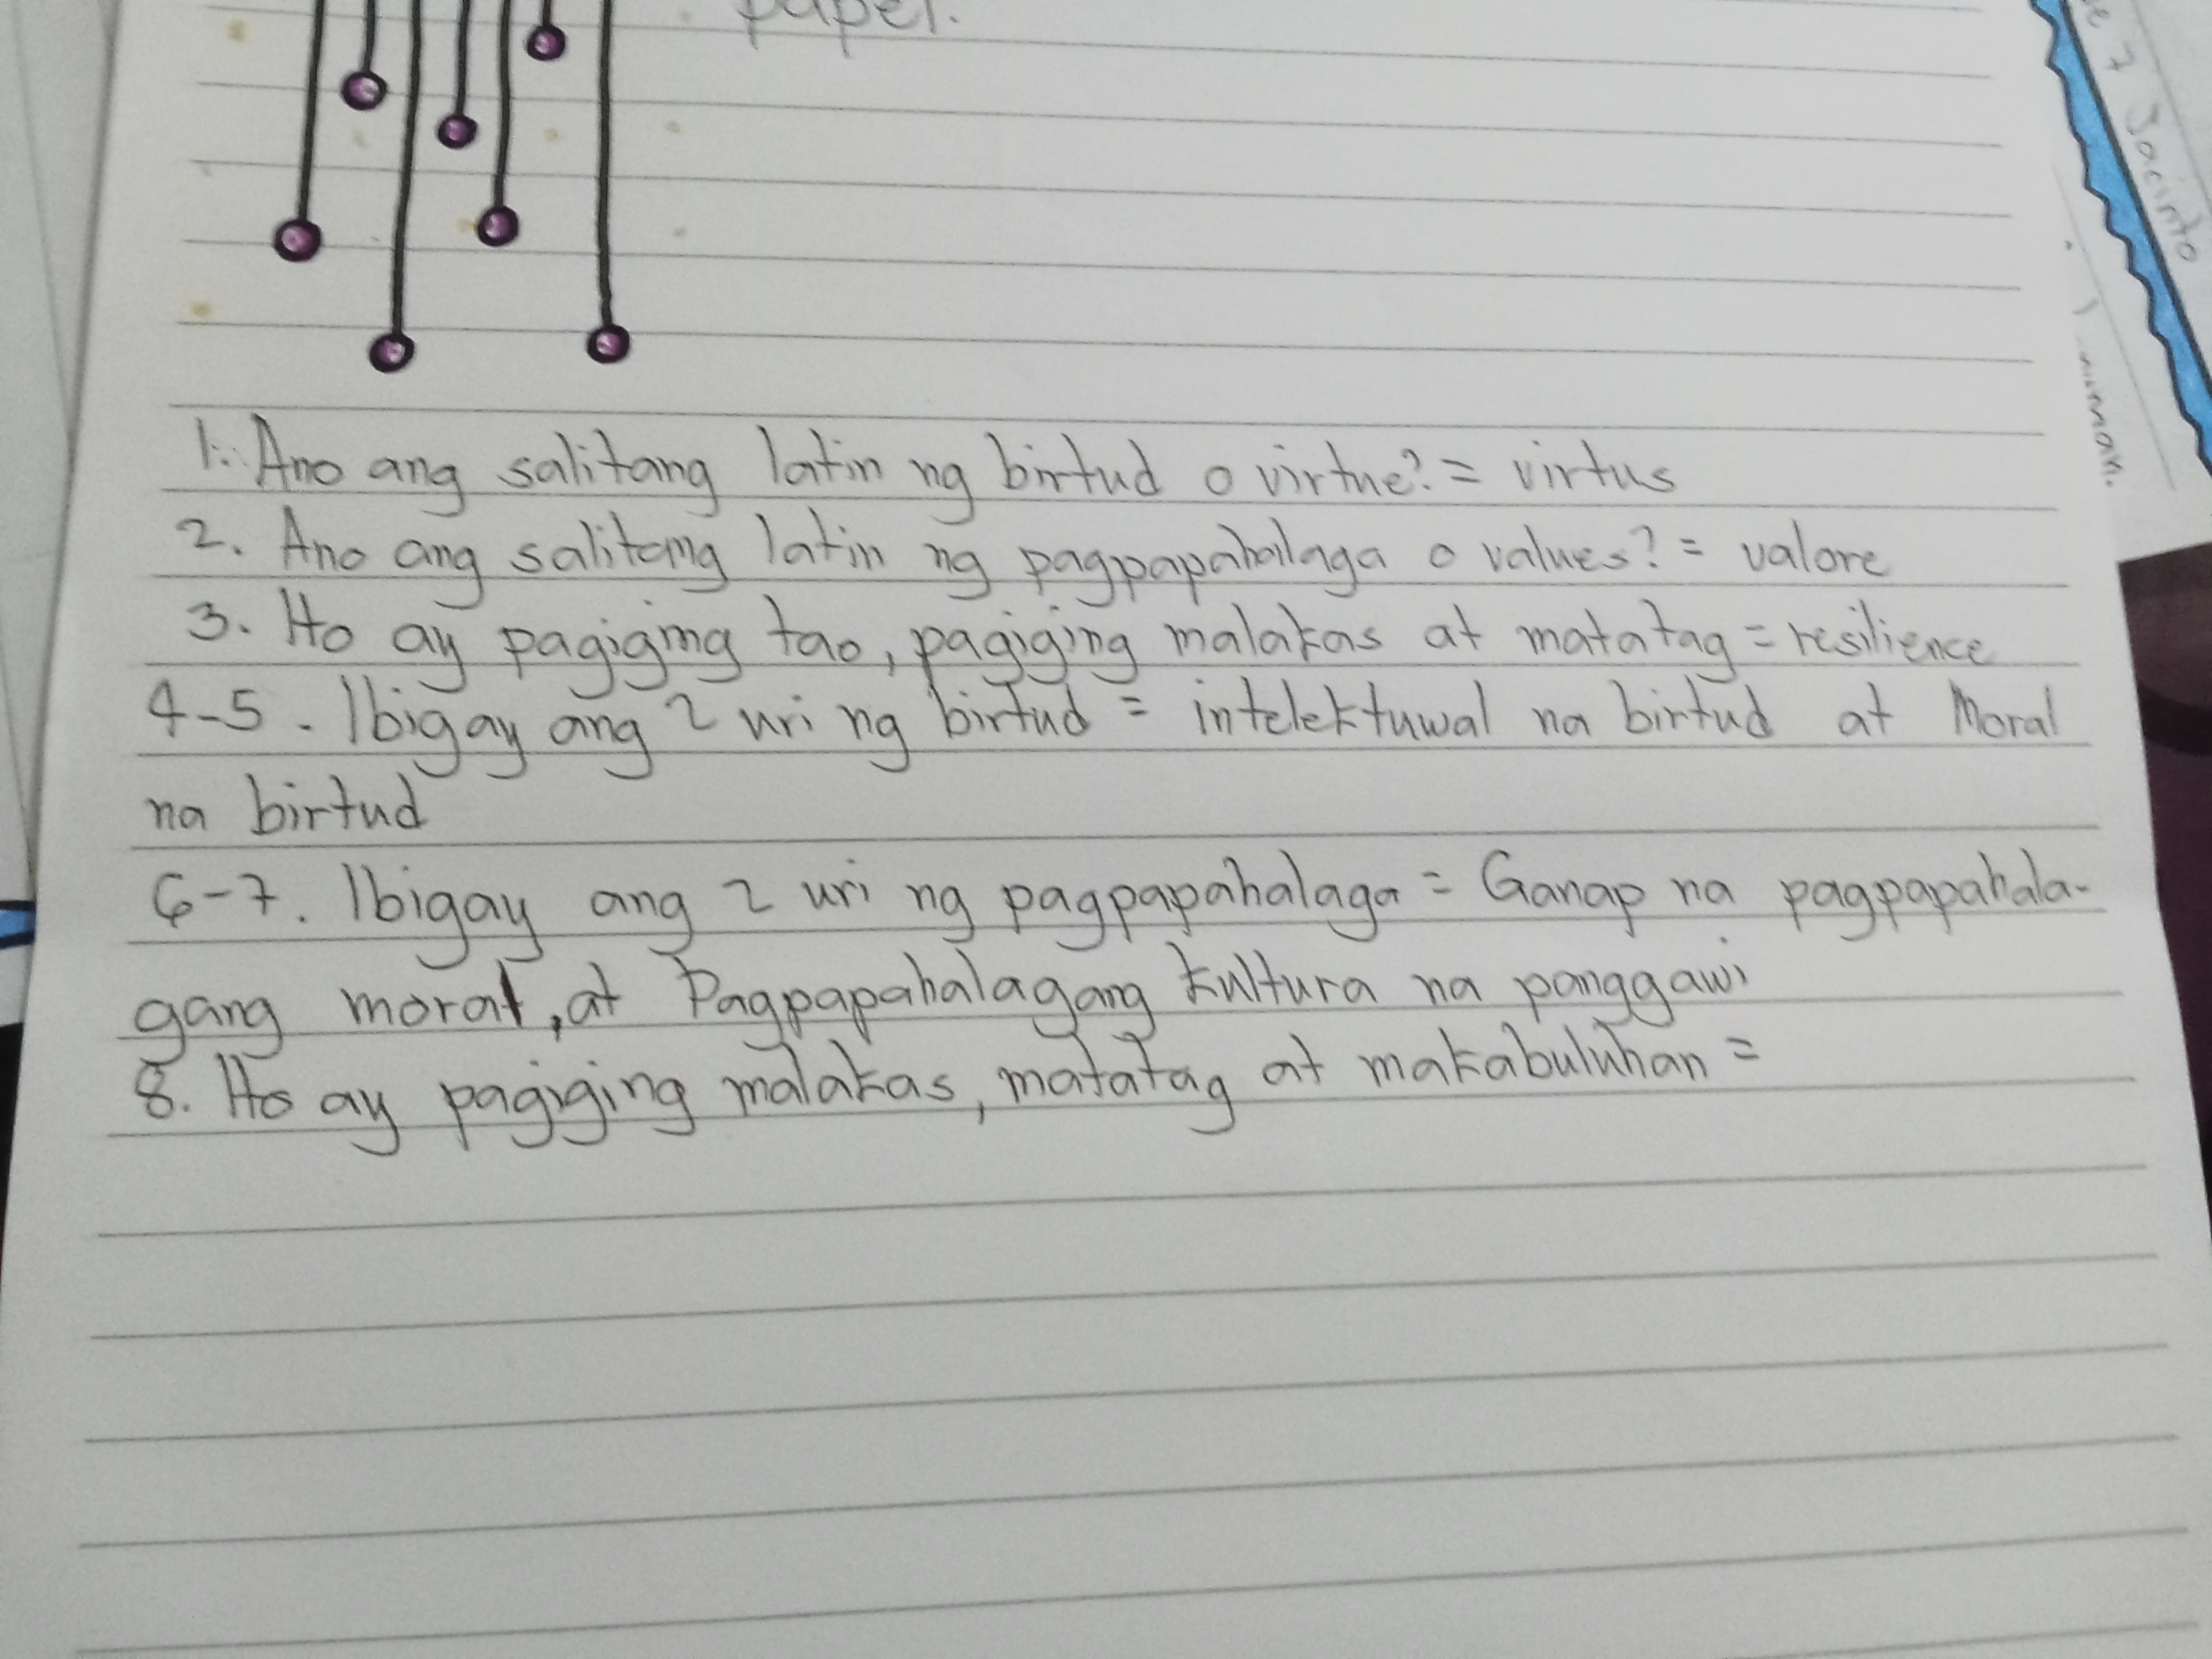 papel.
1. Ano ang salitang latin ng birtud o virtue? = virtus
2. Ano ang salitang latin ng pagpapahalaga o values? = valore
3. Ito ay pagiging tao, pagiging malakas at matatag = resilience
4-5. Ibigay ang 2 uri ng birtud = intelektuwal na birtud at Moral
na birtud
6-7. Ibigay ang 2 uri ng pagpapahalaga = Ganap na pagpapahala-
gang moral, at Pagpapahalagang kultura na panggawi
8. Ito ay pagiging malakas, matatag at makabuluhan =
7 Jacinto